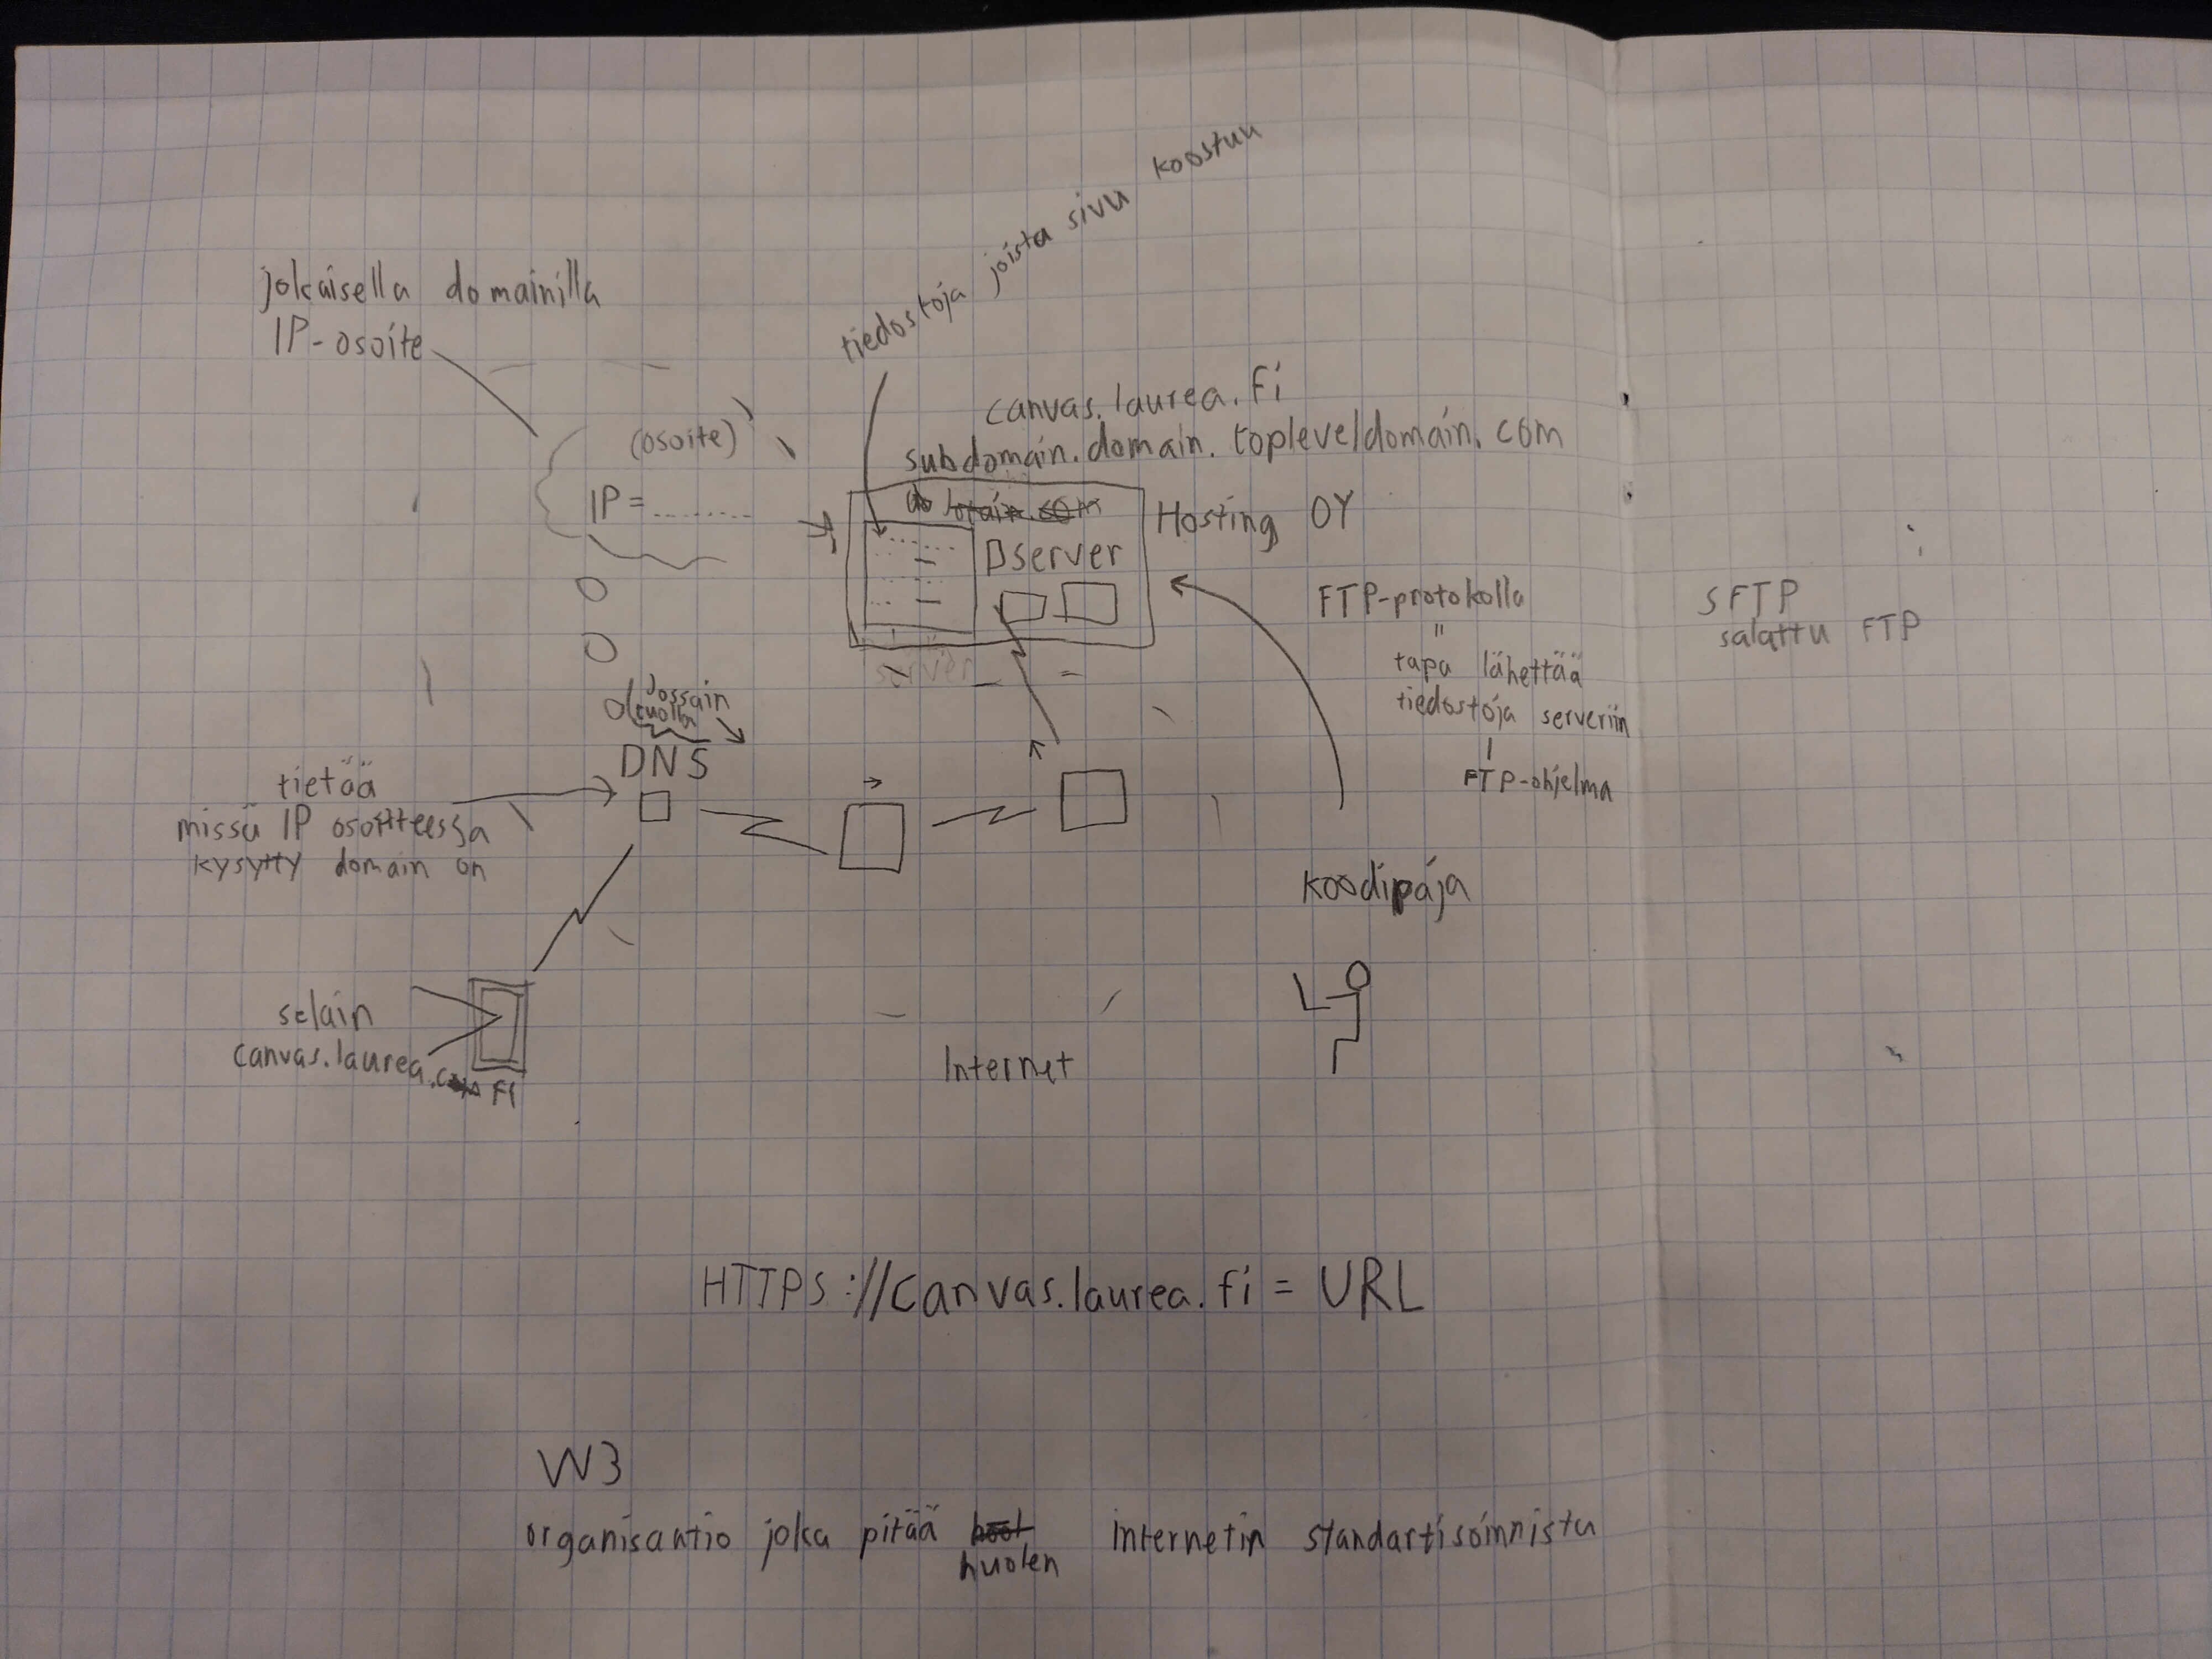 tiedostoja joista sivu koostuu
jokaisella domainilla
IP-osoite
canvas.laurea.fi
subdomain.domain.topleveldomain.com
(osoite)
IP = ........
Hosting OY
server
server
FTP-protokolla
"
tapa lähettää
tiedostoja serveriin
FTP-ohjelma
SFTP
salattu FTP
Jossain
tuolla
DNS
tietää
missä IP osoitteessa
kysytty domain on
koodipaja
selain
canvas.laurea.fi
Internet
HTTPS://canvas.laurea.fi = URL
W3
organisaatio joka pitää huolen internetin standartisoinnista